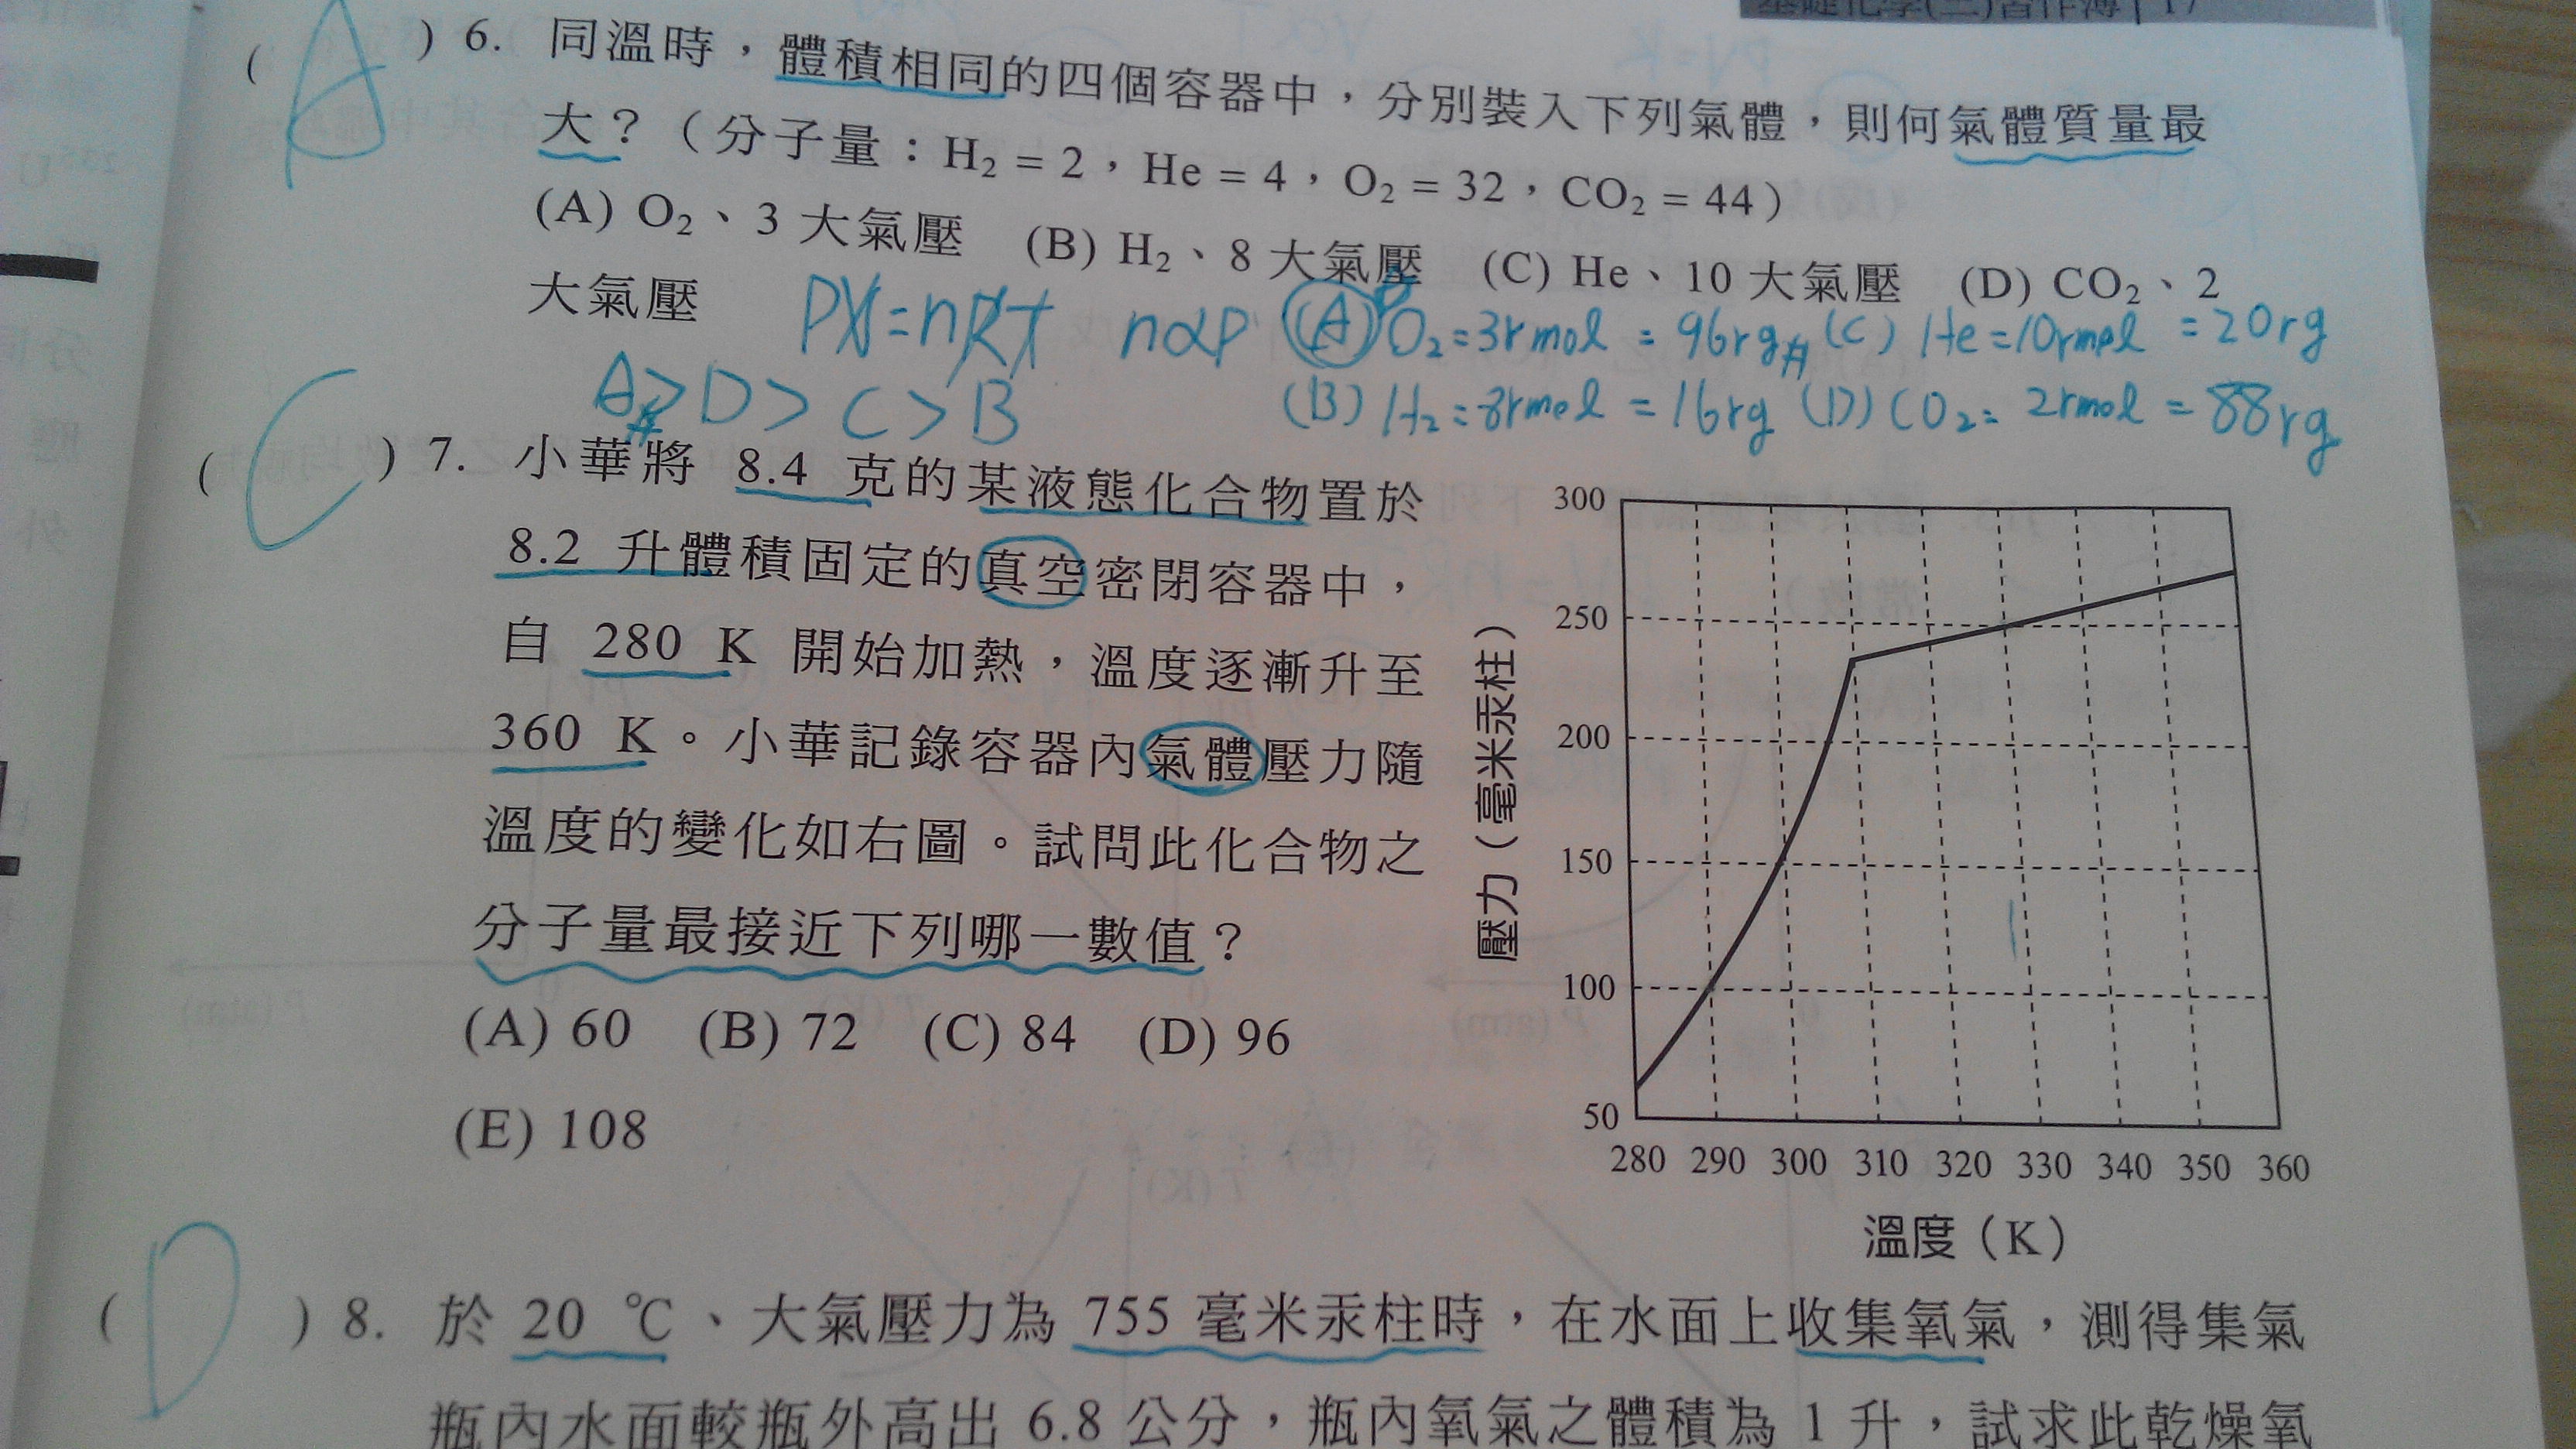 基礎化學(三)習作簿 | 17
( A ) 6. 同溫時，體積相同的四個容器中，分別裝入下列氣體，則何氣體質量最
大？（分子量：H₂ = 2，He = 4，O₂ = 32，CO₂ = 44）
(A) O₂、3 大氣壓 (B) H₂、8 大氣壓 (C) He、10 大氣壓 (D) CO₂、2
大氣壓
PV=nRT n∝P (A) O₂=3rmol = 96rg# (C) He=10rmol = 20rg
A#>D>C>B (B) H₂=8rmol = 16rg (D) CO₂= 2rmol = 88rg
( C ) 7. 小華將 8.4 克的某液態化合物置於
8.2 升體積固定的真空密閉容器中，
自 280 K 開始加熱，溫度逐漸升至
360 K。小華記錄容器內氣體壓力隨
溫度的變化如右圖。試問此化合物之
分子量最接近下列哪一數值？
(A) 60 (B) 72 (C) 84 (D) 96
(E) 108
壓力（毫米汞柱）
300
250
200
150
100
50
280 290 300 310 320 330 340 350 360
溫度（K）
( D ) 8. 於 20 ℃、大氣壓力為 755 毫米汞柱時，在水面上收集氧氣，測得集氣
瓶內水面較瓶外高出 6.8 公分，瓶內氧氣之體積為 1 升，試求此乾燥氧